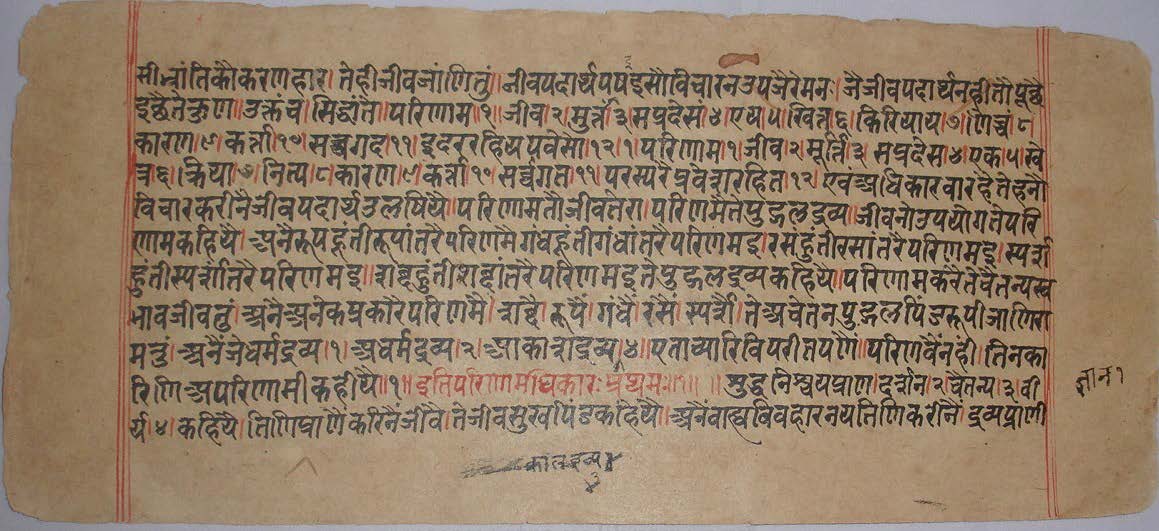 सी भ्रांतिकौ करणहार। तेही जीव जांणितुं॥ जीवपदार्थ पष इसौ विचार न उपजै रे मन जै जीवपदार्थ नही तौ पूछै
इछै ते कुण॥ उक्तं च। सिद्धांते॥ परिणाम॥१॥ जीव।२। मुत्तं।३। सपदेसं।४। एय।५। खित्त।६। किरियाय।७। णिच्चं।८
कारण।९। कर्त्ता।१०। सव्वगद।११। इदररहियपवेसो।१२।१। परिणाम।१। जीव।२। मूर्त्ति।३। सप्रदेस।४। एक।५। खे
त्र।६। क्रिया।७। नित्य।८। कारण।९। कर्त्ता।१०। सर्व्वगत।११। परस्परै प्रवेशरहित।१२। एवं अधिकार बार है तेहनौ
विचार करीनै जीवपदार्थ उलषियै॥ परिणाम तौ जीव तरा। परिणमै ते पुद्गलद्रव्य। जीवनो उपयोग ते परि
णाम कहियै। अनै रूप हूंती रूपांतरै परिणमै गंध हूंती गंधांतरै परिणमइ। रस हुंती रसांतरै परिणमइ। स्पर्श
हुंती स्पर्शांतरै परिणमइ॥ शब्द हुंती शब्दांतरै परिणमइ ते पुद्गलद्रव्य कहियै। परिणाम करै ते चैतन्य स्व
भाव जीवतुं। अनै अनेक प्रकारै परिणमै। शब्दै। रूपैं। गंधैं। रसैं। स्पर्शै। ते अचेतन पुद्गल पिंडरूपी जाणिवा
मतुं। अनैं जे धर्मद्रव्य।१। अधर्मद्रव्य।२। आकाशद्रव्य।४। एता च्यारि विपरीतपणै॥ परिणवैं नंही। तिन का
रिणि अपरिणामी कहीयै॥१॥ इति परिणामधिकारः प्रथमः॥१॥ ॥ सुद्ध निस्चय प्राण। दर्शन।२। चैतन्य।३। वी
र्य।४। कहियै। तिणि प्राणैं करीनै जीवै। ते जीव सुखपिंड कहियै। अनैं वाह्य विवहार नय तिणि करीनै। द्रव्यप्राणी
ज्ञान१
कालद्रव्य
३